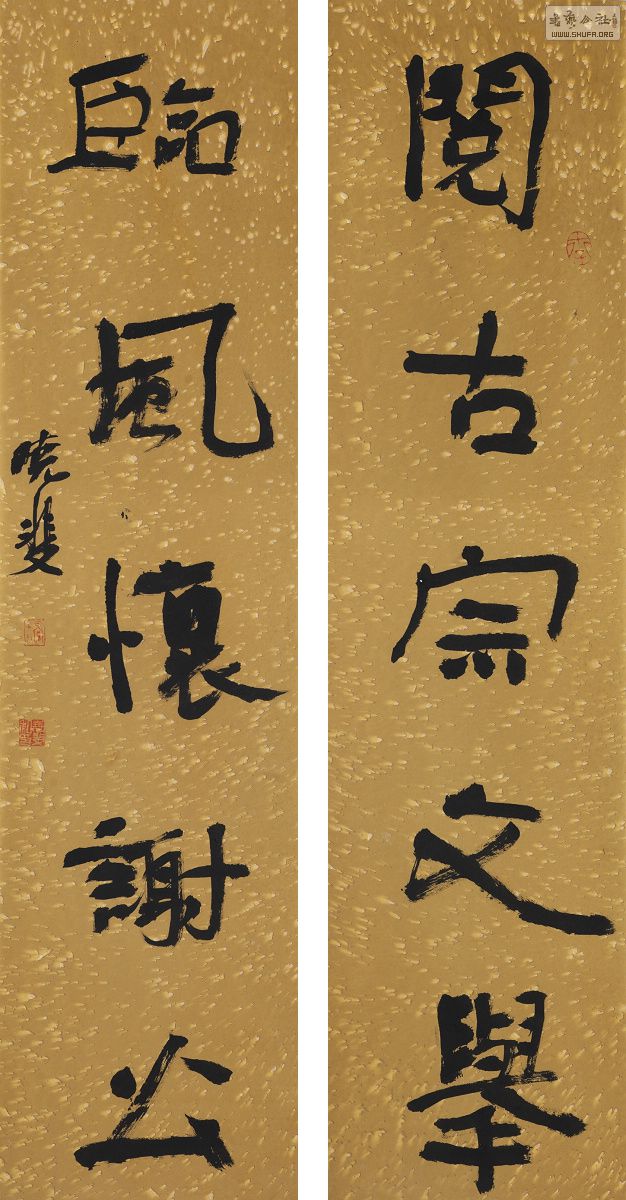 閱古宗文舉
臨風懷謝公
曉斐
書藝公社
WWW.SHUFA.ORG